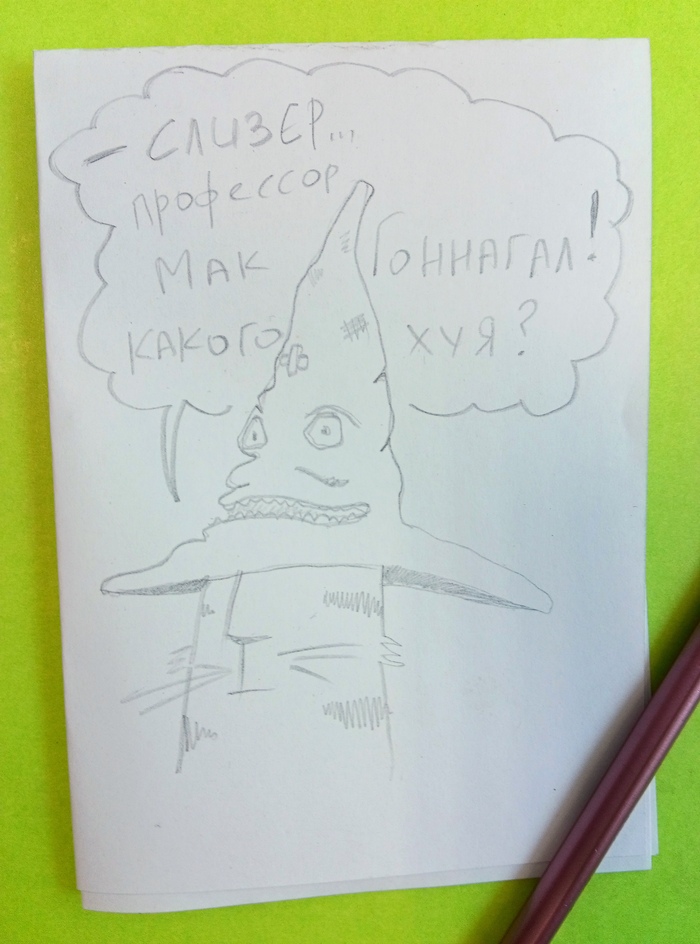 — СЛИЗЕР...
профессор
МАК ГОННАГАЛ!
КАКОГО ХУЯ?